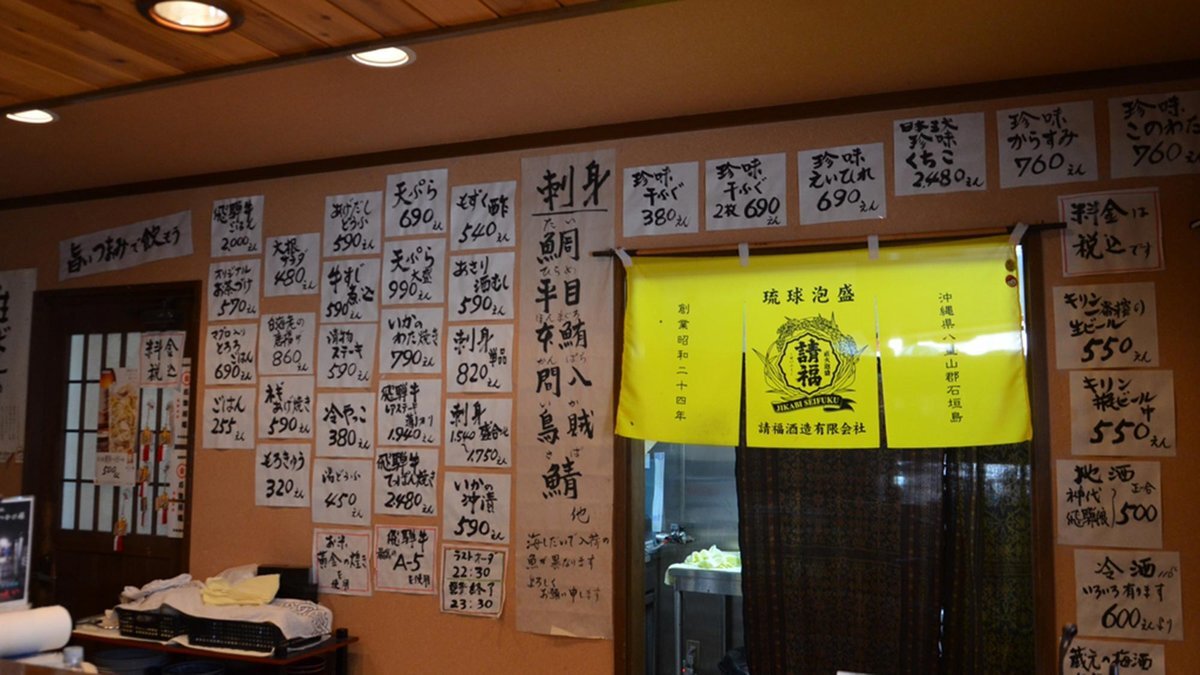 旨いつまみで飲もう
飛騨牛
ごはん
2,000えん
オリジナル
お茶づけ
570えん
マグロ入り
とろろ
ごはん
690えん
ごはん
255えん
大根
サラダ
480えん
唐揚げ
860えん
あげ焼き
590えん
もろきゅう
320えん
あげだし
とうふ
590えん
牛すじ
煮込
590えん
漬物
ステーキ
590えん
冷やっこ
380えん
湯どうふ
450えん
お米
黄金の煌き
を使用
天ぷら
690えん
天ぷら
大盛
990えん
いかの
わた焼き
790えん
飛騨牛
1,940えん
飛騨牛
てっぱん焼き
2480えん
飛騨牛
A-5
を使用
もずく酢
540えん
あさり
酒むし
590えん
刺身
単品
820えん
刺身
盛合せ
1,540
1,750えん
いかの
沖漬
590えん
ラストオーダー
22:30
営業終了
23:30
刺身
たい
鯛
ひらめ
平目
ほんまぐろ
本鮪
かんぱち
間八
いか
烏賊
さば
鯖
他
海しだいで入荷の
魚が異なります
よろしく
お願い申します
珍味
干ふぐ
380えん
珍味
干ふぐ
2枚 690えん
珍味
えいひれ
690えん
珍味
くちこ
2,480えん
珍味
からすみ
760えん
珍味
このわた
760えん
料金は
税込です
料金
税込
500
琉球泡盛
創業昭和二十四年
請福
JIKABI SEIFUKU
請福酒造有限会社
沖縄県八重山郡石垣島
キリン一番搾り
生ビール
550えん
キリン
瓶ビール中
550えん
地酒
神代
飛騨
500
冷酒
いろいろ有ります
600えんより
蔵元の梅酒